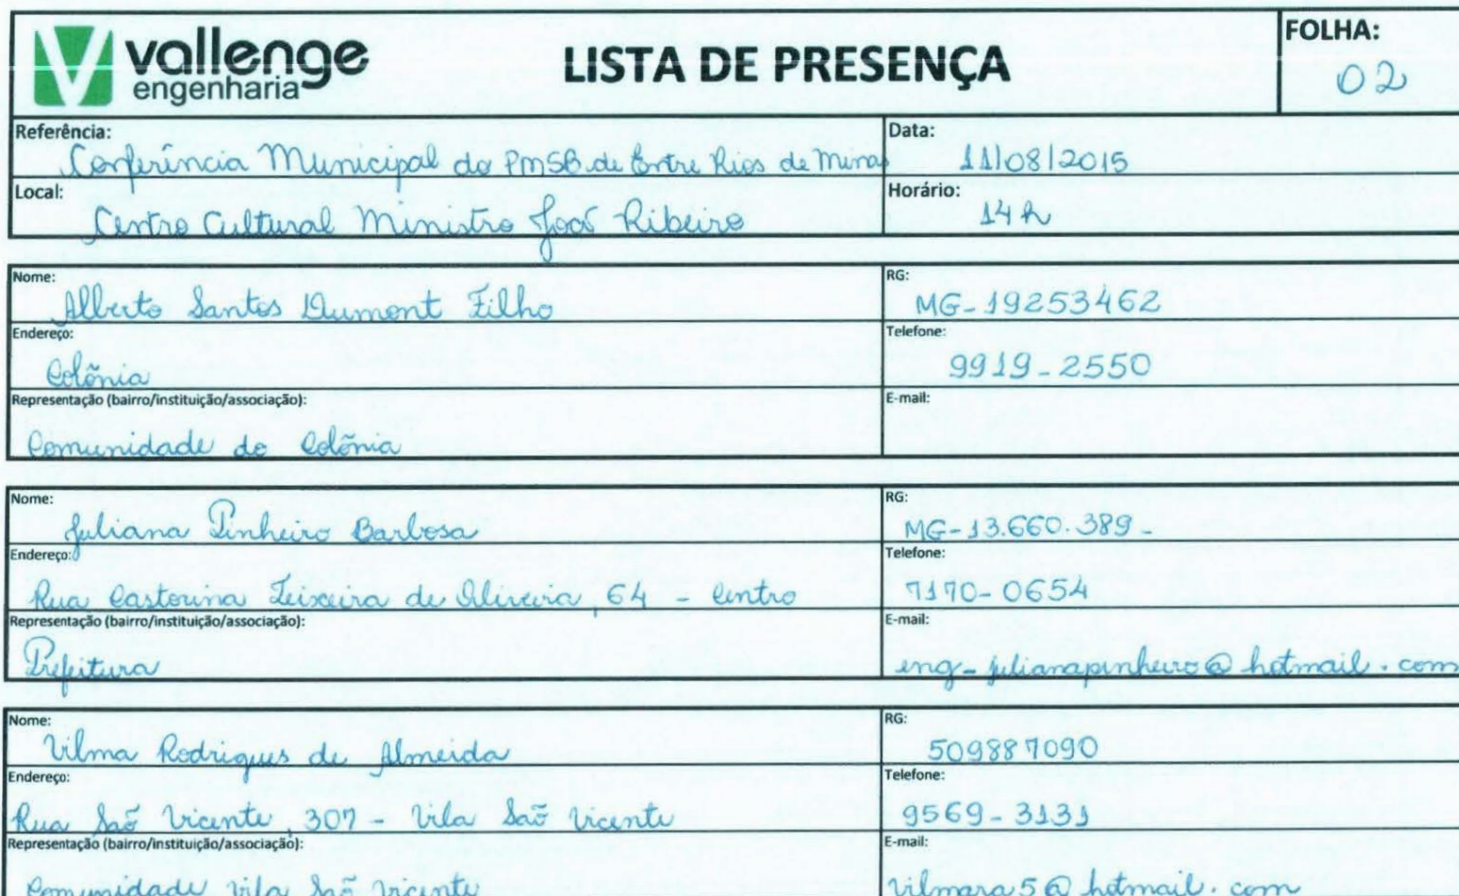 vallenge
engenharia
LISTA DE PRESENÇA
FOLHA:
02
Referência:
Conferência Municipal do PMSB de Entre Rios de Minas
Data:
11/08/2015
Local:
Centro Cultural Ministro João Ribeiro
Horário:
14 h
Nome:
Alberto Santos Dumont Filho
RG:
MG-19253462
Endereço:
Colônia
Telefone:
9919-2550
Representação (bairro/instituição/associação):
Comunidade do Colônia
E-mail:
Nome:
Juliana Pinheiro Barbosa
RG:
MG-13.660.389-
Endereço:
Rua Castorina Teixeira de Oliveira, 64 - Centro
Telefone:
7170-0654
Representação (bairro/instituição/associação):
Prefeitura
E-mail:
eng-julianapinheiro@hotmail.com
Nome:
Vilma Rodrigues de Almeida
RG:
509887090
Endereço:
Rua São Vicente, 307 - Vila São Vicente
Telefone:
9569-3131
Representação (bairro/instituição/associação):
Comunidade Vila São Vicente
E-mail:
vilmara5@hotmail.com